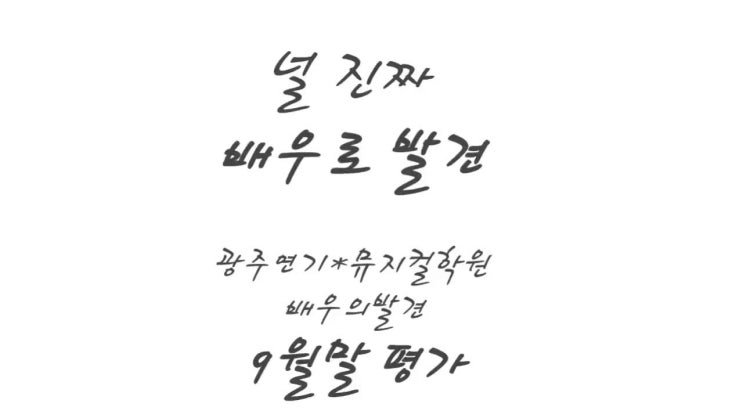 널 진짜
배우로 발견
광주연기*뮤지컬학원
배우의발견
9월말 평가